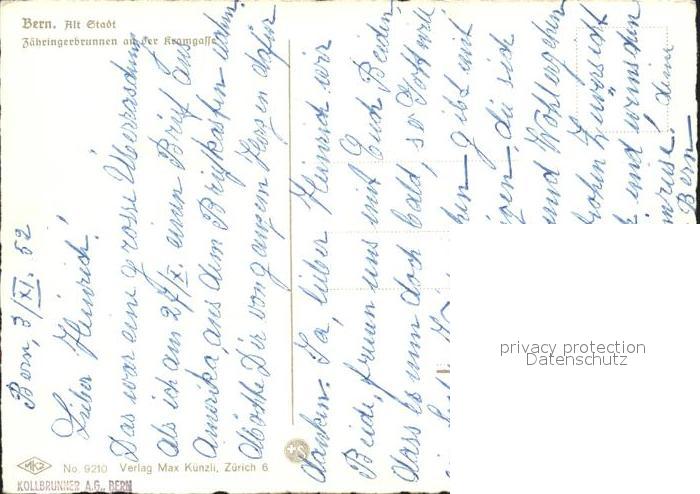 Bern. Alt Stadt
Zähringerbrunnen an der Kramgasse
Bern, 3/XI. 52
Lieber Heinrich!
Das war eine grosse Überraschung
als ich am 27/X. einen Brief aus
Amerika, aus dem Briefkasten nahm.
Möchte Dir von ganzem Herzen dafür
danken. Ja, lieber Heinrich wir
Beide, freuen uns mit Euch Beiden
dass es nun doch bald, so Gott will
gibt mit
die sich
und Wohlergehen
frohen Zuversicht
und wünschen
Bern
privacy protection
Datenschutz
No. 9210 Verlag Max Künzli, Zürich 6
KOLLBRUNNER A.G., BERN